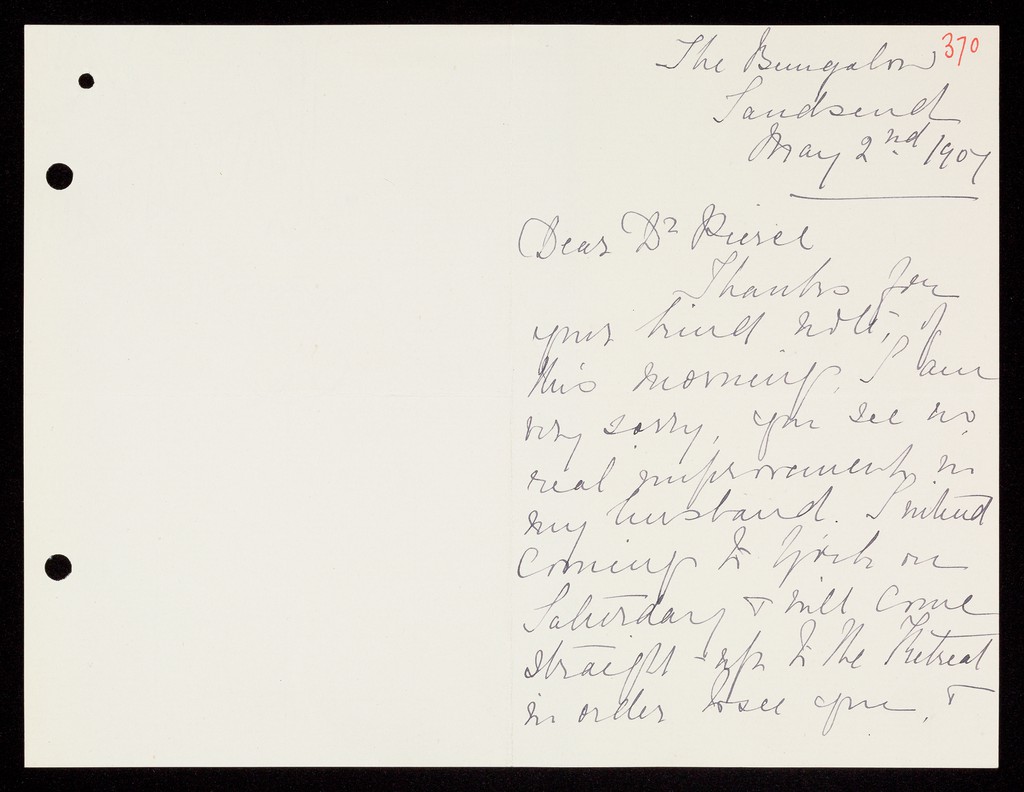 370
The Bungalow
Sandsend
May 2nd 1907
Dear Dr Pierce
Thanks for
your kind note, of
this morning, I am
very sorry, you see no
real improvement in
my husband. I intend
coming to York on
Saturday & will come
straight up to the Retreat
in order to see you, &